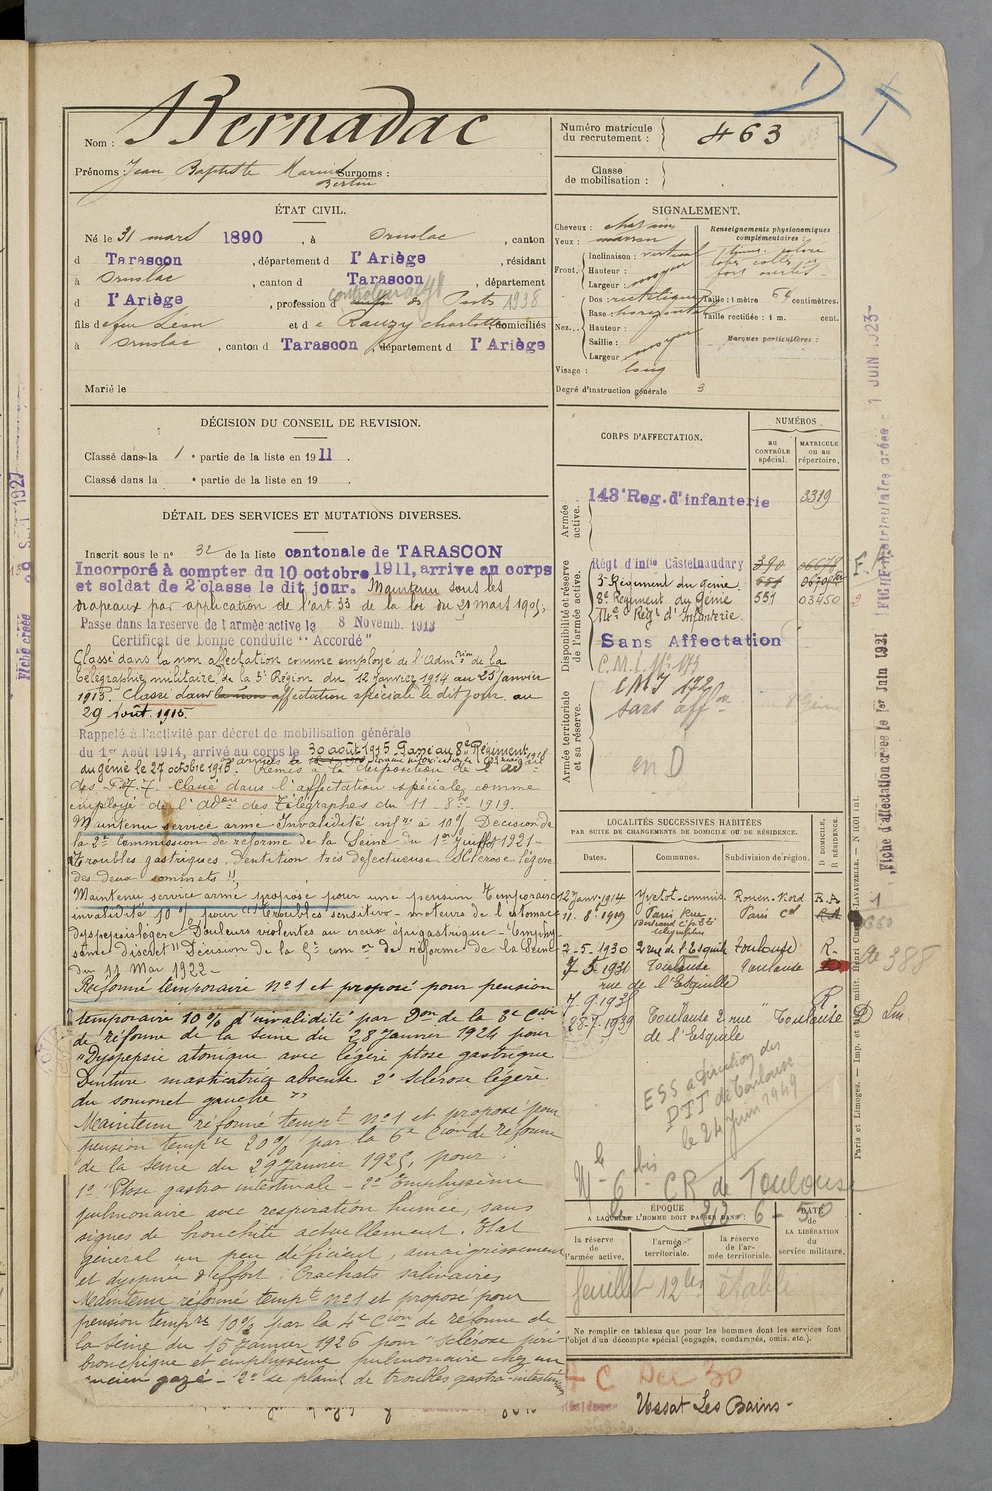 Nom : Bernadac
Prénoms : Jean Baptiste Marius Surnoms :
Bertin
Numéro matricule
du recrutement : 463
Classe
de mobilisation :
ÉTAT CIVIL.
Né le 31 mars 1890, à Ornolac, canton
d Tarascon, département d l'Ariège, résidant
à Ornolac, canton d Tarascon, département
d l'Ariège, profession d des Postes 1938
fils de feu Léon et de Rauzy Charlotte, domiciliés
à Ornolac, canton d Tarascon, département d l'Ariège
Marié le
SIGNALEMENT.
Cheveux : chatains
Yeux : marron
Front. Inclinaison : vertical
Hauteur : moyen
Largeur :
Nez... Dos : rectiligne
Base : horizontal
Hauteur :
Saillie : moyen
Largeur :
Visage : long
Renseignements physionomiques
complémentaires :
Taille : 1 mètre 64 centimètres.
Taille rectifiée : 1 m. cent.
Marques particulières :
Degré d'instruction générale 3
DÉCISION DU CONSEIL DE REVISION.
Classé dans la 1e partie de la liste en 1911.
Classé dans la e partie de la liste en 19
DÉTAIL DES SERVICES ET MUTATIONS DIVERSES.
Inscrit sous le n° 32 de la liste cantonale de TARASCON
Incorporé à compter du 10 octobre 1911, arrivé au corps
et soldat de 2e classe le dit jour. Maintenu sous les
drapeaux par application de l'art 33 de la loi du 21 mars 1905,
Passé dans la réserve de l'armée active le 8 Novemb. 1913
Certificat de bonne conduite "Accordé"
Classé dans la non affectation comme employé de l'Admion de la
télégraphie militaire de la 3e Région du 12 janvier 1914 au 25 janvier
1915. Classé dans la non affectation spéciale le dit jour au
29 Août 1915.
Rappelé à l'activité par décret de mobilisation générale
du 1er Août 1914, arrivé au corps le 30 août 1915. Passé au 8e Régiment
du génie le 27 octobre 1915. Remis à la disposition de l'Adon
des P.T.T. Classé dans l'affectation spéciale comme
employé de l'Adon des Télégraphes du 11-8-1919.
Maintenu service armé Invalidité infre à 10% Décision de
la 2e Commission de réforme de la Seine du 1er Juillet 1921 -
"Troubles gastriques, dentition très défectueuse Sclérose légère
des deux sommets"
Maintenu service armé proposé pour une pension temporaire
invalidité 10% pour "Troubles sensitivo-moteurs de l'estomac
dyspepsie légère Douleurs violentes au creux épigastrique - Emphy-
sème discret" Décision de la Con de réforme de la Seine
du 11 Mai 1922 -
Réformé temporaire N°1 et proposé pour pension
temporaire 10% d'invalidité par Don de la 3e Con
de réforme de la Seine du 28 Janvier 1924 pour
"Dyspepsie atonique avec légère ptose gastrique
Denture masticatrice absente 2° sclérose légère
du sommet gauche"
Maintenu réformé tempre n°1 et proposé pour
pension tempre 20% par la 6e Cion de réforme
de la Seine du 29 Janvier 1925, pour :
1° "Ptose gastro intestinale - 2° Emphysème
pulmonaire avec respiration humée, sans
signes de bronchite actuellement. Etat
général un peu déficient, amaigrissement
et dyspnée d'effort. Crachats salivaires
Maintenu réformé tempre n°1 et proposé pour
pension tempre 10% par la 4e Cion de réforme de
la Seine du 15 Janvier 1926 pour "Sclérose péri
bronchique et emphysème pulmonaire chez un
ancien gazé - 2° se plaint de troubles gastro-intestinaux
CORPS D'AFFECTATION.
NUMÉROS
au
CONTRÔLE
spécial.
MATRICULE
OU AU
répertoire.
Armée
active.
143e Reg. d'infanterie 3319
Disponibilité et réserve
de l'armée active.
Régt d'inf Castelnaudary 390
3e Régiment du génie.
8e Régiment du Génie 551 03450
14e Régt d'Infanterie.
Sans Affectation
C.M.I. N° 173
Armée territoriale
et sa réserve.
CMI 172
sans affon
en D
LOCALITÉS SUCCESSIVES HABITÉES
PAR SUITE DE CHANGEMENTS DE DOMICILE OU DE RÉSIDENCE.
Dates. Communes. Subdivision de région. D DOMICILE, R RÉSIDENCE.
12 Janv. 1914 Yvetot-commis. Rouen-Nord R.A
11-8-1919 Paris Rue Paris Cal
2-5-1930 2 rue de l'Esquile Toulouse R-
7-5-1931 Toulouse Toulouse
rue de l'Esquille
7.9.193
23-7-1939 Toulouse 2 rue " Toulouse D
de l'Esquile
ESS a direction des
PTT de Toulouse
le 24 Juin 1949
CR de Toulouse
le 22-6-50
ÉPOQUE
A LAQUELLE L'HOMME DOIT PASSER DANS :
DATE
de
LA LIBÉRATION
du
service militaire.
la réserve
de
l'armée active.
l'armée
territoriale.
la réserve
de l'ar-
mée territoriale.
feuillet 12 bis établi
Ne remplir ce tableau que pour les hommes dont les services font
l'objet d'un décompte spécial (engagés, condamnés, omis, etc.).
Ussat Les Bains -
Fiche d'affectation créée le 1er Juin 1927
FICHE matriculaire créée - 1 JUIN 1923-
Fiche créée
388